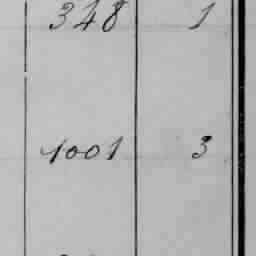 348 1
1001 3